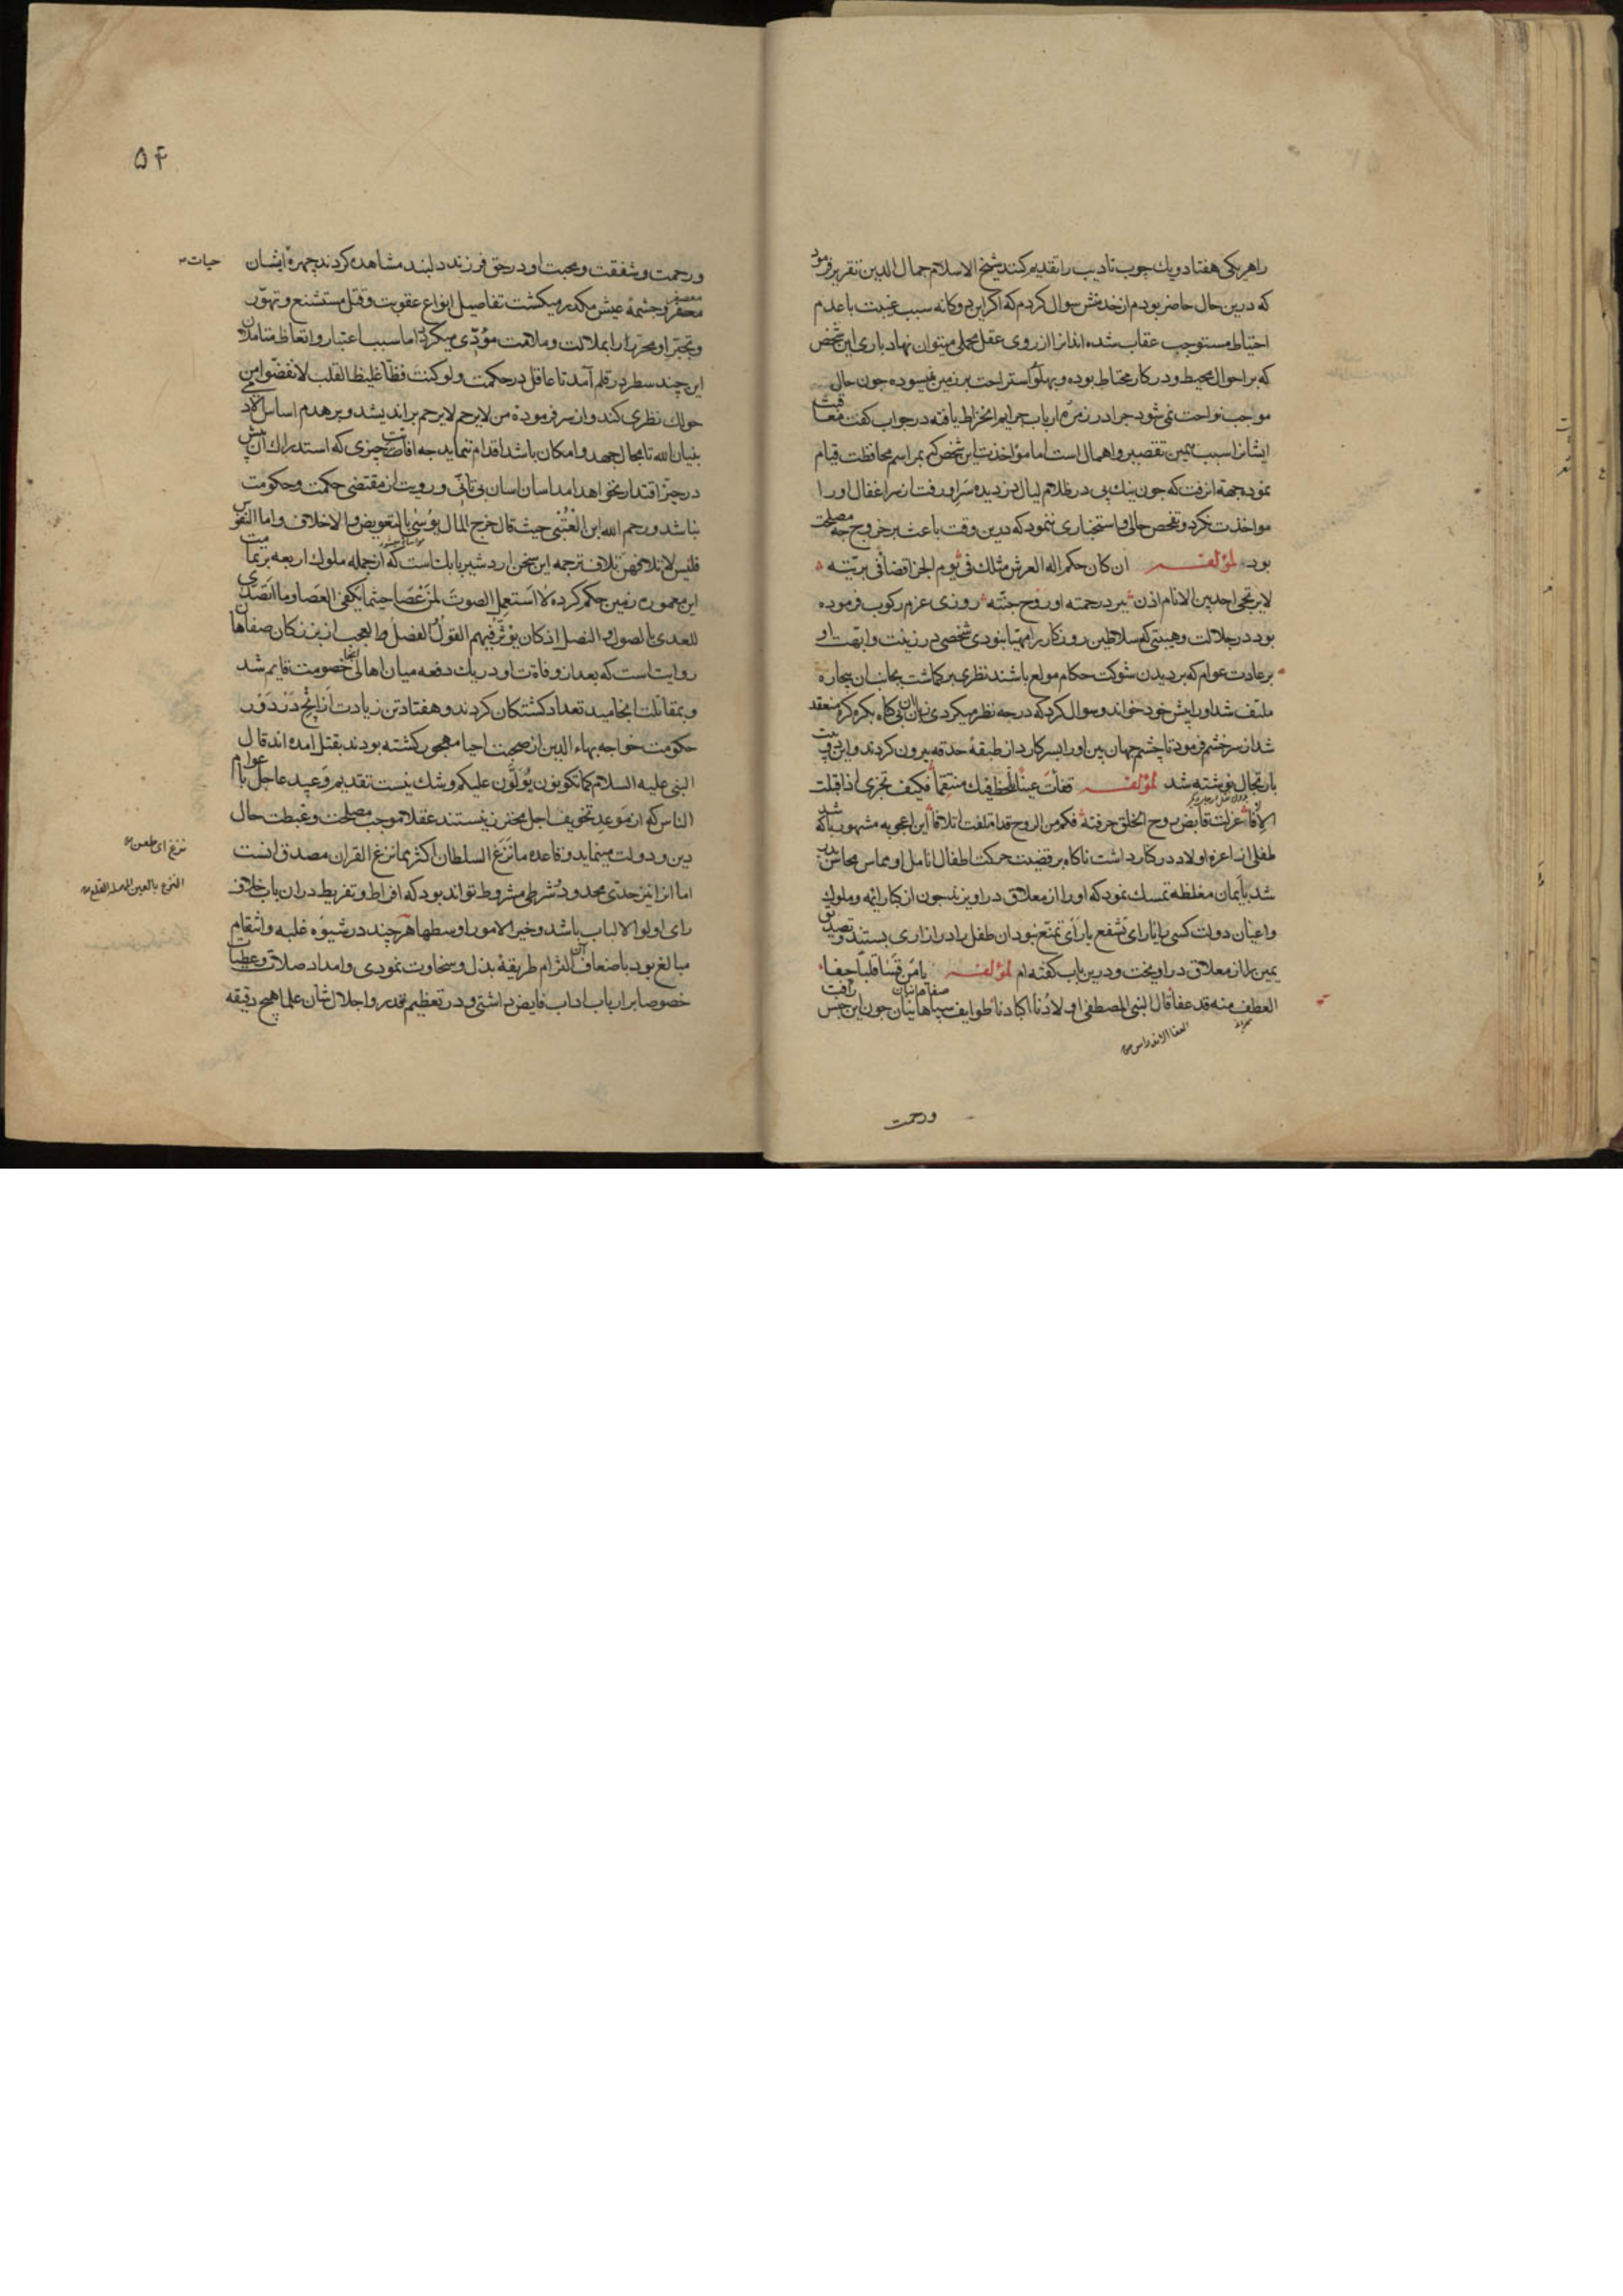 را هریکی هفتاد و یك چوب تادیب را تقدیم کنند شیخ الاسلام جمال الدین تقریر فرمود
که درین حال حاضر بودم از خدمتش سوال کردم که اکر این دوکانه سبب غیبت یا عدم
احتیاط مستوجب عقاب شده اند انرا از روی عقل محملی میتوان نهاد باری این شخص
که بر احوال محیط و در کار محتاط بوده و پهلو استراحت بر زمین نیسوده چون حال
موجب نواخت نمی شود چرا در زمره ارباب جرایم انخراط یافته در جواب کفت معاقبت
ایشانرا سبب همین تقصیر و اهمال است اما مواخذت این شخص که بمراسم محافظت قیام
نموده جهة انرفت که چون نیك پی در ظلام لیال دزدیده سر او رفت از سر اغفال او را
مواخذت نکرد و تفحص حالی و استخباری ننمود که درین وقت باعث بر خروج چه مصلحت
بود لمؤلفه ان کان حکم اله العرش مثلك فی یوم الجزا قضا فی بریته
لا یرتجی احد بین الانام اذن برد رحمته او روح جنته روزی عزم رکوب فرموده
بود در جلالت و هیبتی که سلاطین روزکار را مهیا نبودی شخصی در زینت و ابهت او
بر عادت عوام که بر دیدن شوکت حکام مولع باشند نظری بر کماشت بجانب ان بیچاره
ملتفت شد او را پیش خود خواند و سوال کرد که در چه نظر میکردی زبان ان بی کناه بکره کره منعقد
شد از سر خشم فرمود تا چشم جهان بین او را بسر کارد از طبقهٔ حدقه بیرون کردند و این دو بیت
بارتجال نوشته شد لمؤلفه فقات عینا للحظیك منتقما فکیف تجزی اذا قبلت
الافا عزلت قابض روح الخلق حرفته فکم من الروح قد اتلفت اتلافا این اعجوبه مشهور شد با که
طفلی از اعزه اولاد در کنار داشت ناکاه بر قضیت حرکت اطفال انامل او مماس محاسن پدر
شد بایمان مغلظه تمسك نمود که او را از معلاق در اویزند چون از کبار ائمه و ملوك
و اعیان دولت کسی را یارای تشفع یا رای تمنع نبود ان طفل را در ازاری بستند و تصدیق
یمین را از معلاق در اویخت و درین باب کفته ام لمؤلفه یا من قسا قلبا جفا
العطف منه قد عفا قال النبی المصطفی اولادنا اکبادنا طوایف سپاهانیان چون این جنس رافت
صفاهانیان
ورحمت
۵۴
ورحمت و شفقت و محبت او در حق فرزند دلبند مشاهده کردند چهره ایشان حیات
معصفر و چشمهٔ عیش مکدر میکشت تفاصیل انواع عقوبت و قتل مستشنع و تهور
و تجبر او محررانرا بملالت و ملامت مؤدی میکردد اما سبب اعتبار و اتعاظ متاملان
این چند سطر در قلم آمد تا عاقل در حکمت و لو کنت فظا غلیظ القلب لانفضوا من
حولك نظری کند و از سر فرمودهٔ من لا یرحم لا یرحم بر اندیشد و بر هدم اساس الادمی
بنیان الله تا مجال جهد و امکان باشد اقدام ننماید چه افاتت چیزی که استدراك آن بیش
در حیز اقتدار نخواهد امد اسان اسان بی تانی و رویت از مقتضی حکمت و حکومت
نباشد و رحم الله ابن العتبی حیث قال خرج المال یوسی بالتعویض و الاخلاف و اما النفوس
فلیس لاتلافهن تلاف ترجمه این سخن اردشیر بابك است که از جمله ملوك اربعه بر تمامت
این معموره زمین حکم کرده لا استعمل الصوت لمن عصا حیثما یکفی العصا و ما اتصدی
للعدی بالصول و النصل اذ کان یؤثر فیهم القول الفصل و العجب از بزرکان صفاهان
روایت است که بعد از وفات او در یك دفعه میان اهالی انجا خصومت قایم شد
و بمقاتلت انجامید تعداد کشتکان کردند و هفتاد تن زیادت از انچ در دور
حکومت خواجه بهاء الدین از صحبت احیا مهجور کشته بودند بقتل امده اند قال
النبی علیه السلام کما تکونون یولون علیکم و شك نیست تقدیم وعید عاجل با عوام
الناس که از موعد تخویف اجل محترز نیستند عقلا موجب مصلحت و غبطت حال
دین و دولت مینماید و قاعده ما نزغ السلطان اکثر مما نزغ القران مصدق انست
نزغ ای طعن
اما انرا نیز حدی محدود و شرطی مشروط تواند بود که افراط و تفریط در ان باب خلاف
رای اولو الالباب باشد و خیر الامور اوسطها هر چند در شیوه غلبه و انتقام
مبالغ بود باضعاف آن التزام طریقهٔ بذل و سخاوت نمودی و امداد صلات و عطیات
خصوصا بر ارباب اداب فایض داشتی و در تعظیم قدر و اجلال شان علما هیچ دقیقه